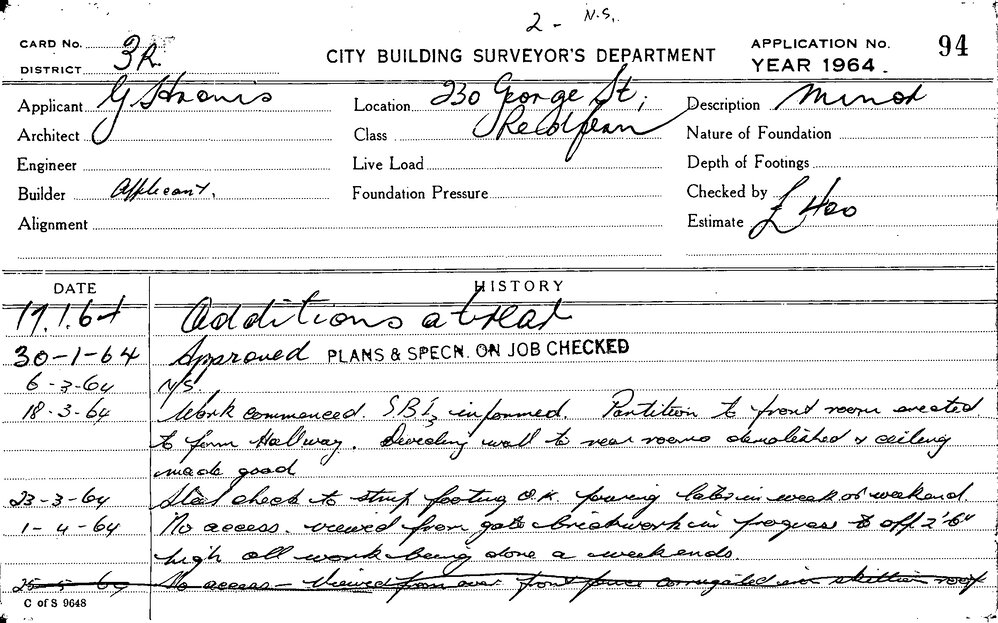 2 - N.S.
CARD No.
DISTRICT 3R.
CITY BUILDING SURVEYOR'S DEPARTMENT
APPLICATION No. 94
YEAR 1964.
Applicant G
Location 230 George St;
Redfern
Description Minor
Architect
Class
Nature of Foundation
Engineer
Live Load
Depth of Footings
Builder Applicant.
Foundation Pressure
Checked by
Estimate £400
Alignment
DATE
HISTORY
17.1.64 Additions at rear
30-1-64 Approved PLANS & SPECN. ON JOB CHECKED
6-3-64 N/S.
18-3-64 Work commenced. S.B.I. informed. Partition to front room erected
to form Hallway. Dividing wall to rear rooms demolished & ceiling
made good
23-3-64 Steel check to strip footing O.K. pouring later in week or weekend.
1-4-64 No access. viewed from gate brickwork in progress to off 2'6"
high all work being done a weekends.
No access - viewed from over front fence corrugated iron skillion roof
C of S 9648